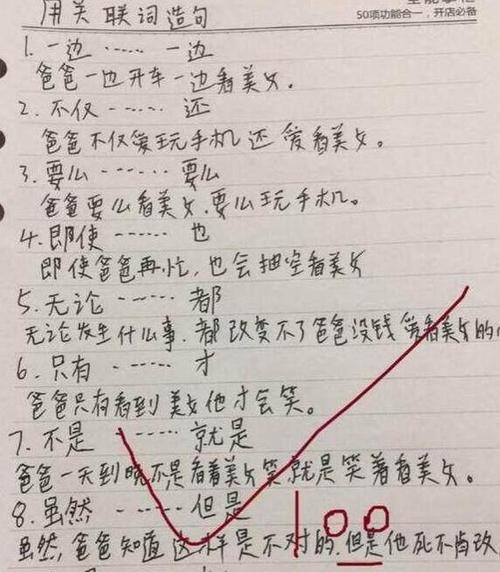 用关联词造句
50项功能合一，开店必备
1. 一边 ······ 一边
爸爸一边开车一边看美女。
2. 不仅 ······ 还
爸爸不仅爱玩手机还爱看美女。
3. 要么 ······ 要么
爸爸要么看美女.要么玩手机。
4. 即使 ······ 也
即使爸爸再忙，也会抽空看美女
5. 无论 ······ 都
无论发生什么事.都改变不了爸爸没钱爱看美女的
6. 只有 ······ 才
爸爸只有看到美女他才会笑。
7. 不是 ······ 就是
爸爸一天到晚不是看着美女笑就是笑着看美女。
8. 虽然 ······ 但是
虽然，爸爸知道这样是不对的.但是他死不肯改
100